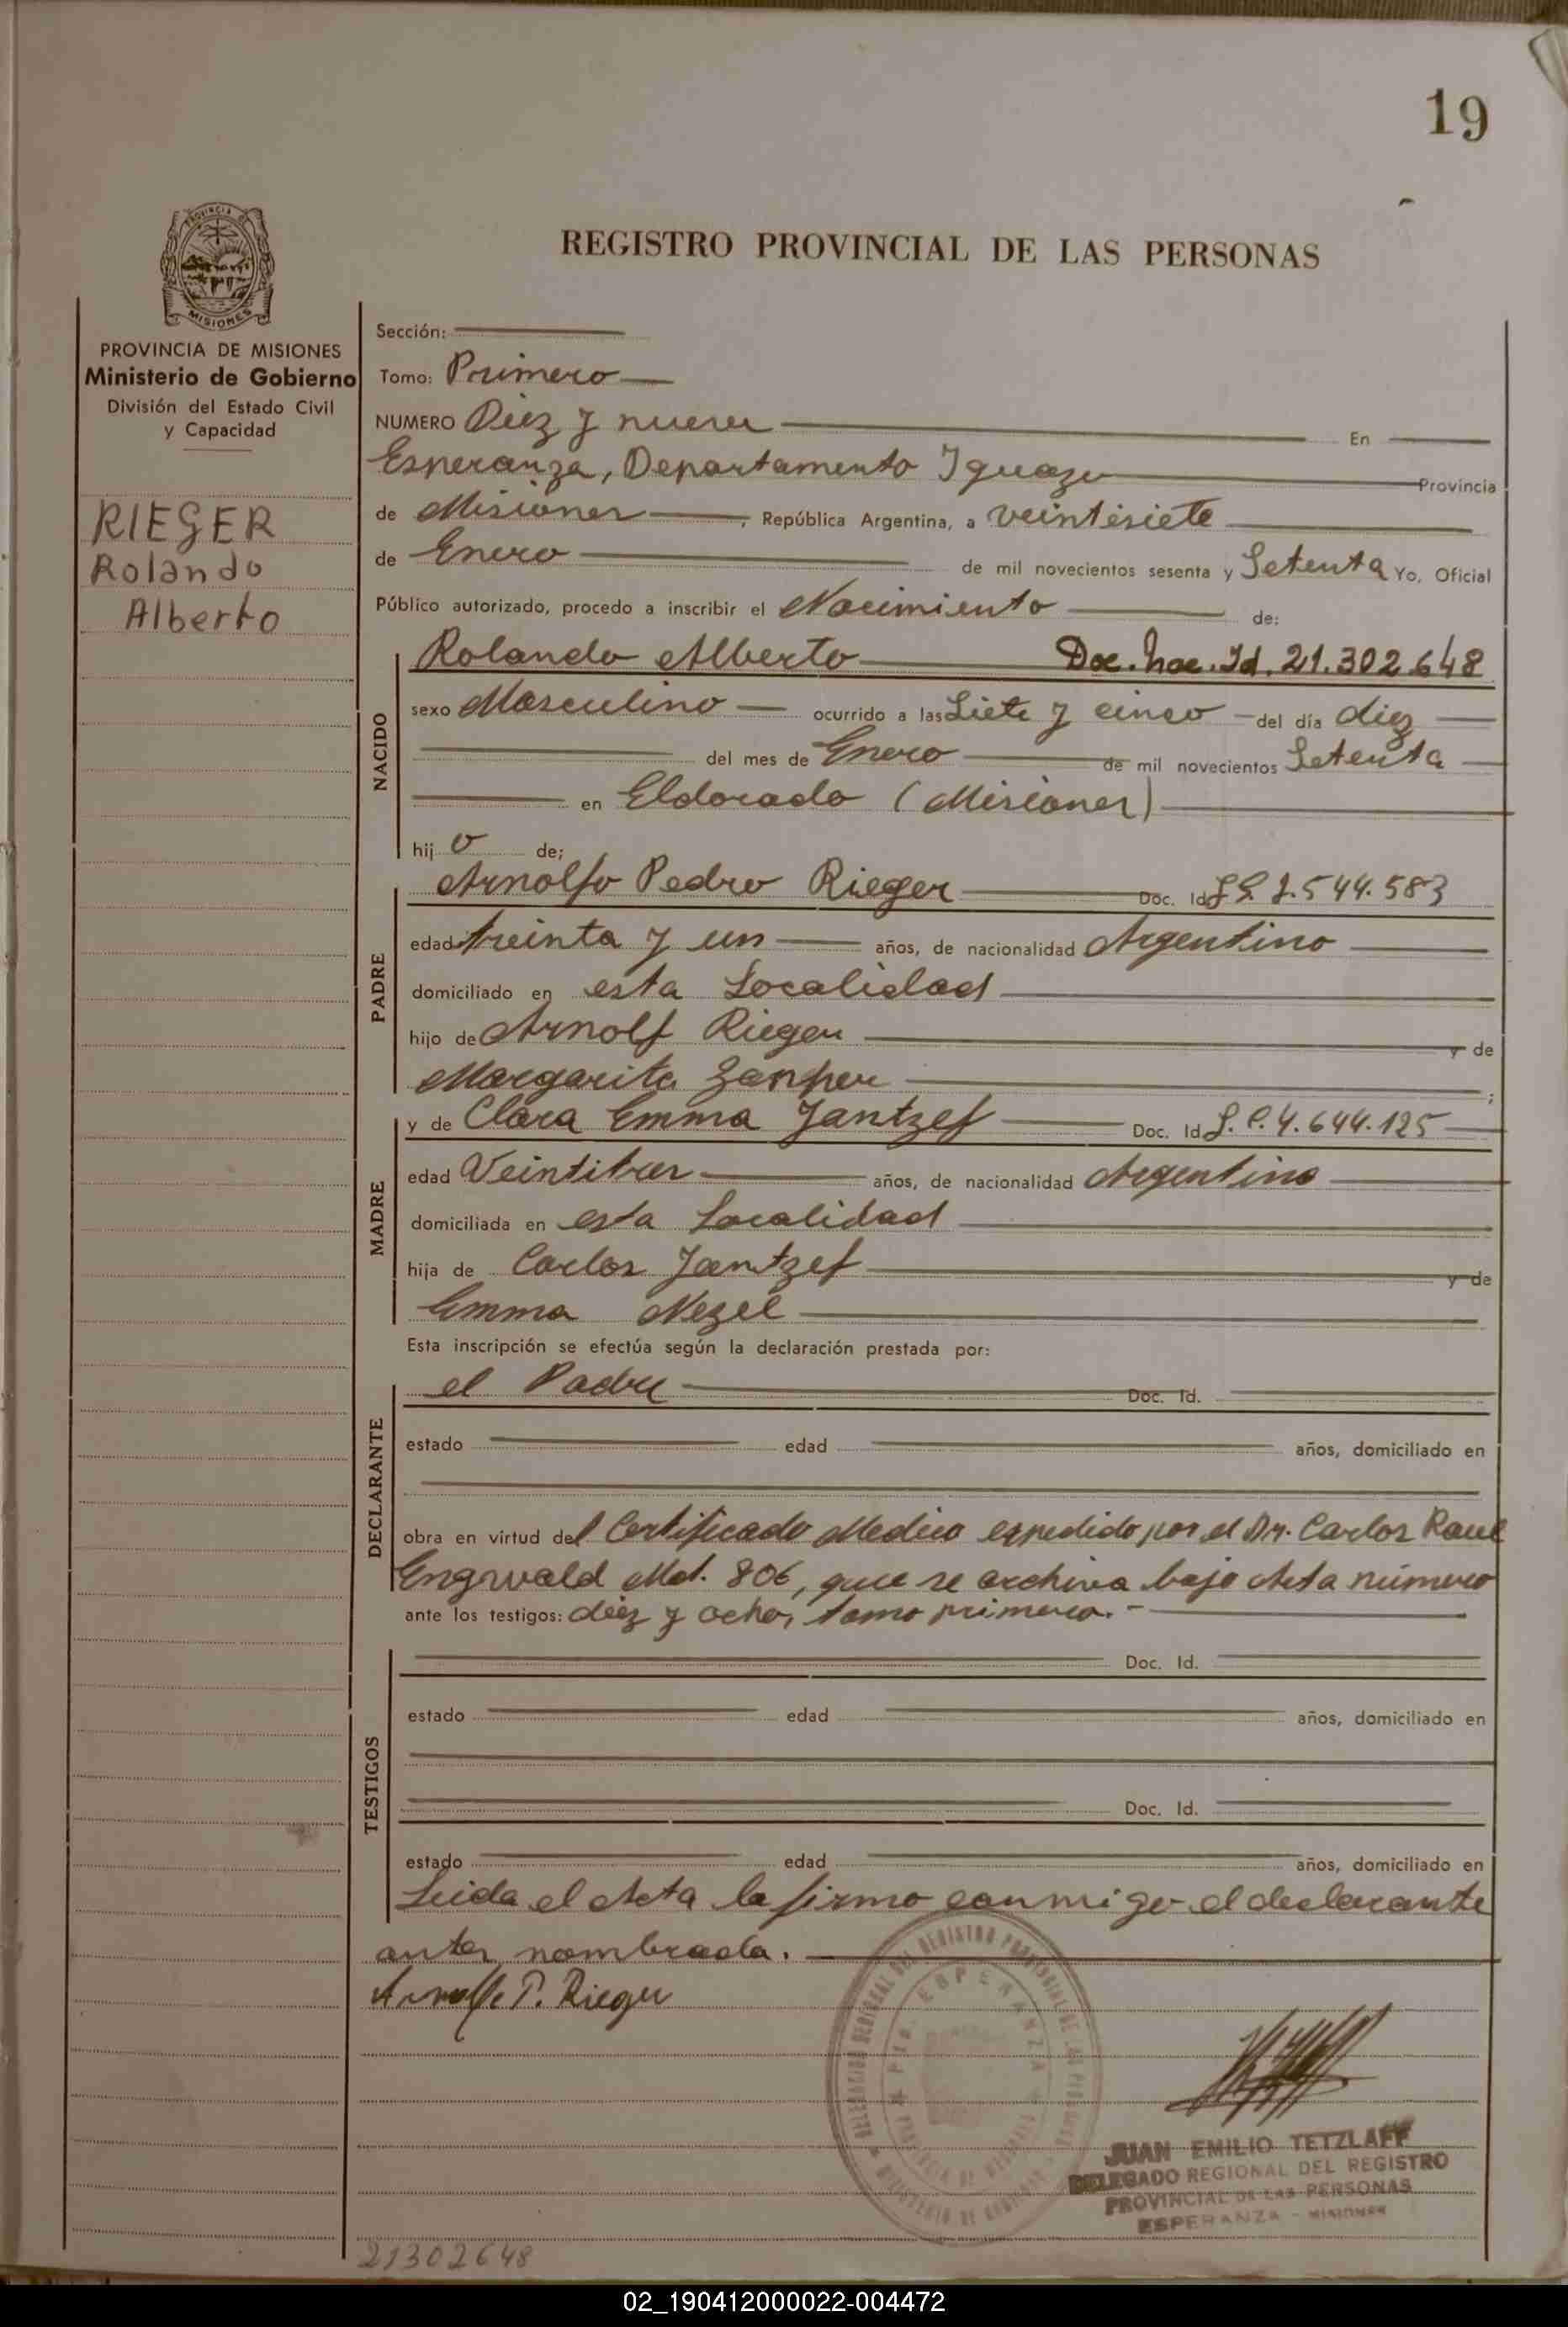 19
PROVINCIA DE
MISIONES
REGISTRO PROVINCIAL DE LAS PERSONAS
PROVINCIA DE MISIONES
Ministerio de Gobierno
División del Estado Civil
y Capacidad
RIEGER
Rolando
Alberto
Sección:
Tomo: Primero
NUMERO Diez y nueve En
Esperanza, Departamento Iguazu Provincia
de Misiones, República Argentina, a veintisiete
de Enero de mil novecientos sesenta y Setenta Yo, Oficial
Público autorizado, procedo a inscribir el Nacimiento de:
NACIDO
Rolando Alberto Doc. Nac. Id. 21.302.648
sexo Masculino ocurrido a las Siete y cinco del día diez
del mes de Enero de mil novecientos Setenta
en Eldorado (Misiones)
hij o de;
PADRE
Arnolfo Pedro Rieger Doc. Id 544.583
edad treinta y un años, de nacionalidad Argentino
domiciliado en esta Localidad
hijo de Arnolf Rieger y de
Margarita ;
MADRE
y de Clara Emma Jantzef Doc. Id 4.644.125
edad Veintitres años, de nacionalidad Argentina
domiciliada en esta Localidad
hija de Carlos Jantzef y de
Emma
Esta inscripción se efectúa según la declaración prestada por:
DECLARANTE
el Padre Doc. Id.
estado edad años, domiciliado en
obra en virtud del Certificado Medico expedido por el Dr. Carlos Raul
Engwald Mat. 806, que se archiva bajo Acta número
ante los testigos: diez y ocho, tomo primero.-
TESTIGOS
Doc. Id.
estado edad años, domiciliado en
Doc. Id.
estado edad años, domiciliado en
Leida el Acta la firma conmigo el declarante
antes nombrado.
Arnolfo P. Rieger
DELEGACION REGIONAL DEL REGISTRO PROVINCIAL DE LAS PERSONAS
ESPERANZA
PROVINCIA DE MISIONES
MINISTERIO DE GOBIERNO
JUAN EMILIO TETZLAFF
DELEGADO REGIONAL DEL REGISTRO
PROVINCIAL DE LAS PERSONAS
ESPERANZA - MISIONES
21302648
02_190412000022-004472